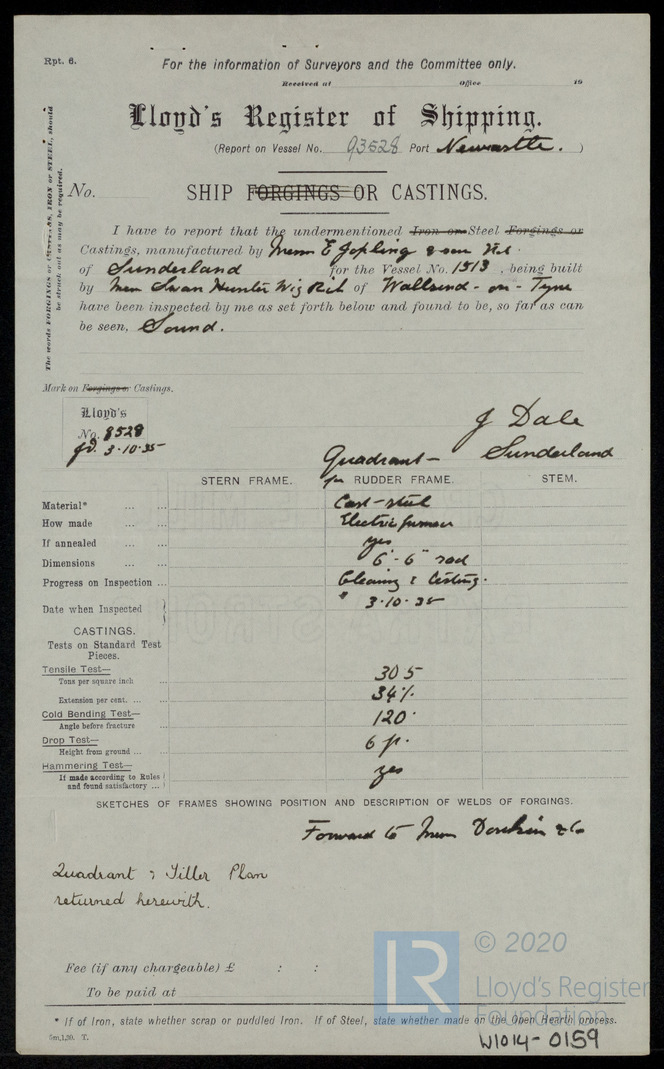 Rpt. 6.
For the information of Surveyors and the Committee only.
Received at Office 19
Lloyd's Register of Shipping.
(Report on Vessel No. 93528 Port Newcastle. )
The words FORGINGS or CASTINGS, IRON or STEEL, should
be struck out as may be required.
No.
SHIP FORGINGS OR CASTINGS.
I have to report that the undermentioned Iron or Steel Forgings or
Castings, manufactured by Messrs E Jopling & Son Ltd.
of Sunderland for the Vessel No. 1513, being built
by Messrs Swan Hunter Wig Rich of Wallsend-on-Tyne
have been inspected by me as set forth below and found to be, so far as can
be seen, Sound.
Mark on Forgings or Castings.
Lloyd's
No. 8528
JD. 3.10.35
J Dale
Sunderland
Quadrant -
for
STERN FRAME. RUDDER FRAME. STEM.
Material* ... ... Cast-steel
How made ... ... Electric furnace
If annealed ... ... yes
Dimensions ... ... 6'-6" rad
Progress on Inspection ... Cleaning & testing.
Date when Inspected " 3.10.35
CASTINGS.
Tests on Standard Test
Pieces.
Tensile Test—
Tons per square inch ... 30.5
Extension per cent. ... ... 34%
Cold Bending Test—
Angle before fracture ... 120°
Drop Test—
Height from ground ... ... 6 ft.
Hammering Test—
If made according to Rules
and found satisfactory ... yes
SKETCHES OF FRAMES SHOWING POSITION AND DESCRIPTION OF WELDS OF FORGINGS.
Forward to Messrs Donkin & Co
Quadrant & Tiller Plan
returned herewith.
Fee (if any chargeable) £ : :
To be paid at
© 2020
LR
Lloyd's Register
Foundation
* If of Iron, state whether scrap or puddled Iron. If of Steel, state whether made on the Open Hearth process.
5m,1,30. T.
W1014-0159